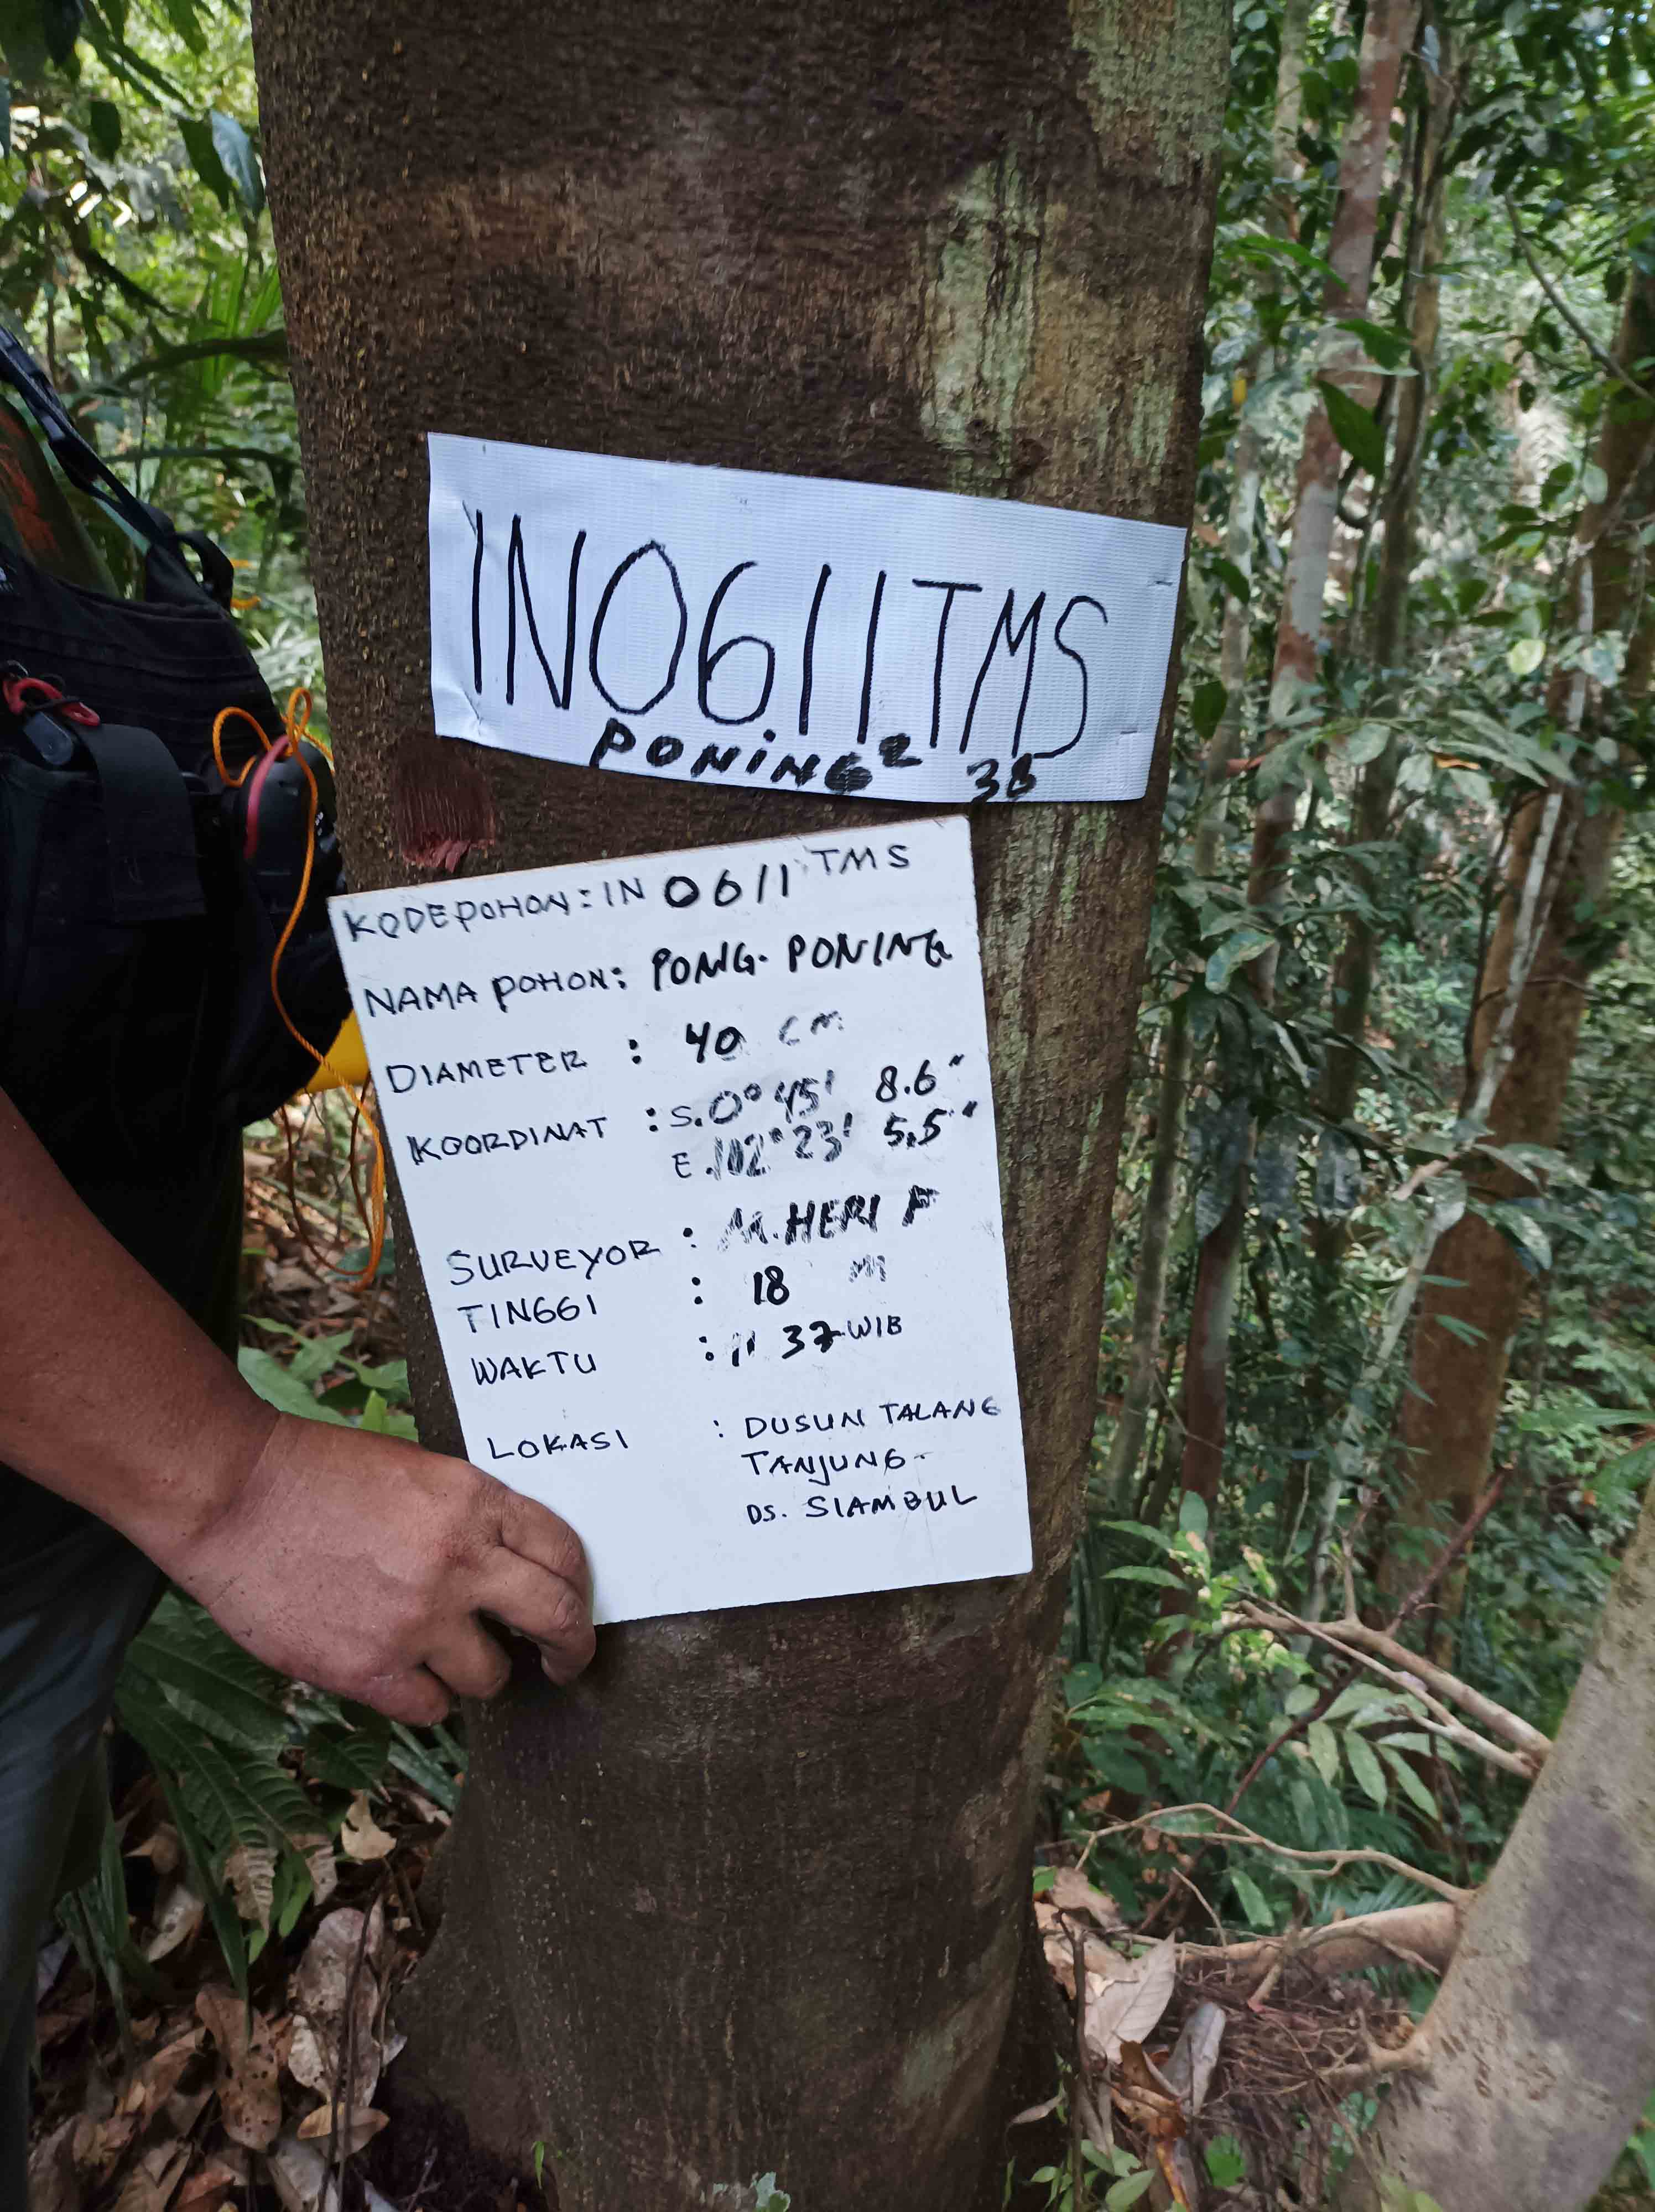 IN0611TMS
PONING² 38
KODE POHON : IN 0611 TMS
NAMA POHON : PONIG. PONING
DIAMETER : 40 CM
KOORDINAT : S. 0° 45' 8.6"
E. 102° 23' 5.5"
SURVEYOR : M. HERI F
TINGGI : 18 M
WAKTU : 11 37 WIB
LOKASI : DUSUN TALANG
TANJUNG.
DS. SIAMBUL